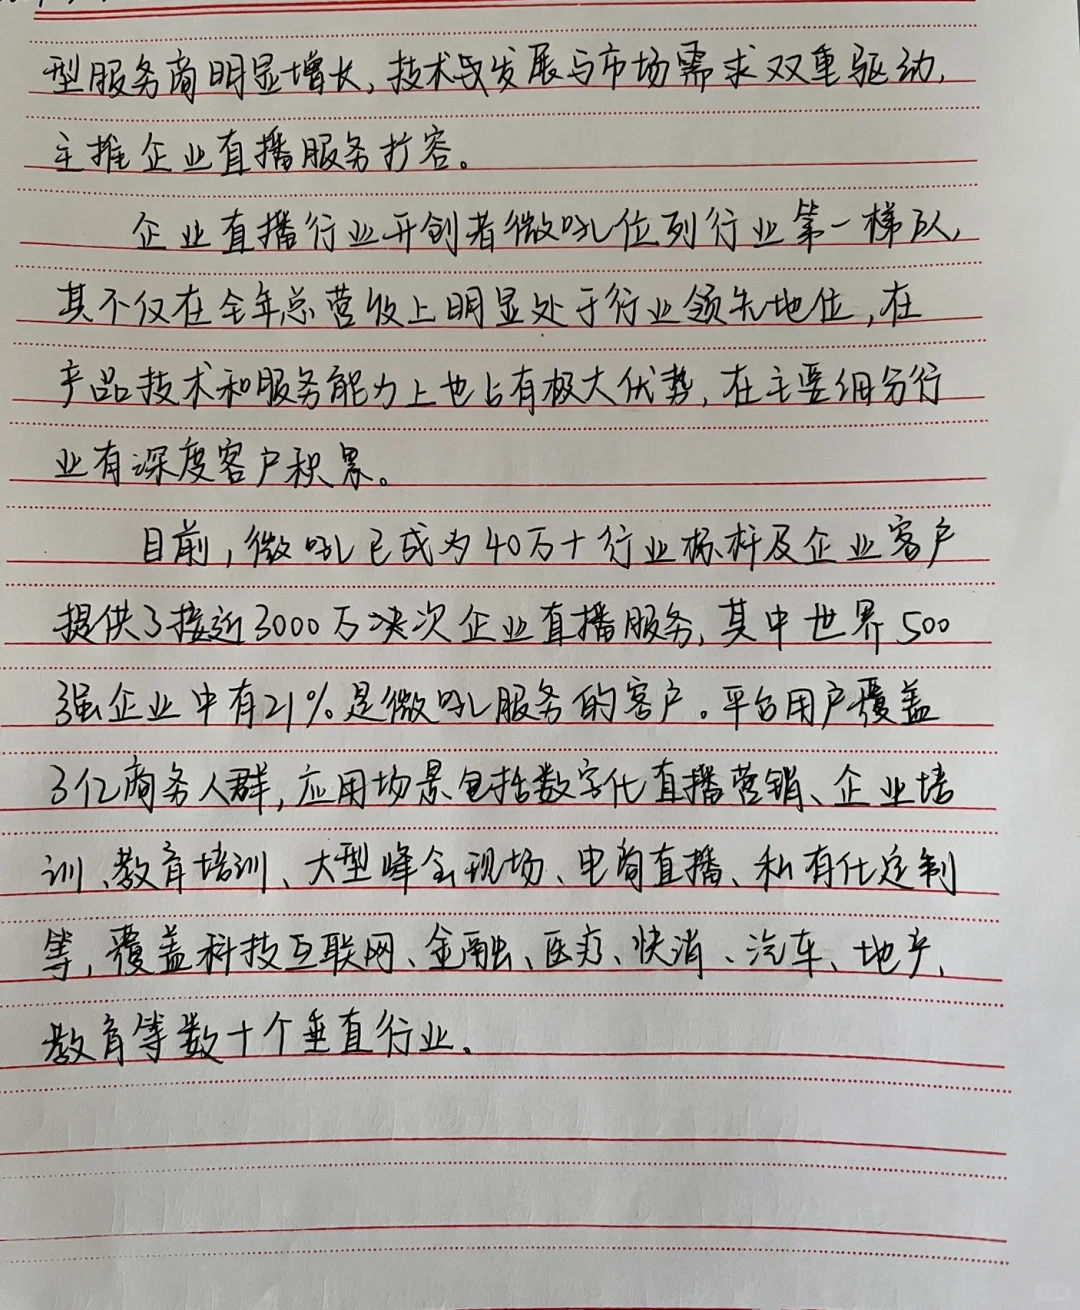 型服务商明显增长,技术与发展与市场需求双重驱动,
主推企业直播服务扩容。
企业直播行业开创者微吼位列行业第一梯队,
其不仅在全年总营收上明显处于行业领先地位,在
产品技术和服务能力上也占有极大优势,在主要细分行
业有深度客户积累。
目前,微吼已成为40万十行业标杆及企业客户
提供了接近3000万决次企业直播服务,其中世界500
强企业中有21%是微吼服务的客户。平台用户覆盖
3亿商务人群,应用场景包括数字化直播营销、企业培
训、教育培训、大型峰会现场、电商直播、私有化定制
等,覆盖科技互联网、金融、医疗、快消、汽车、地产、
教育等数十个垂直行业、